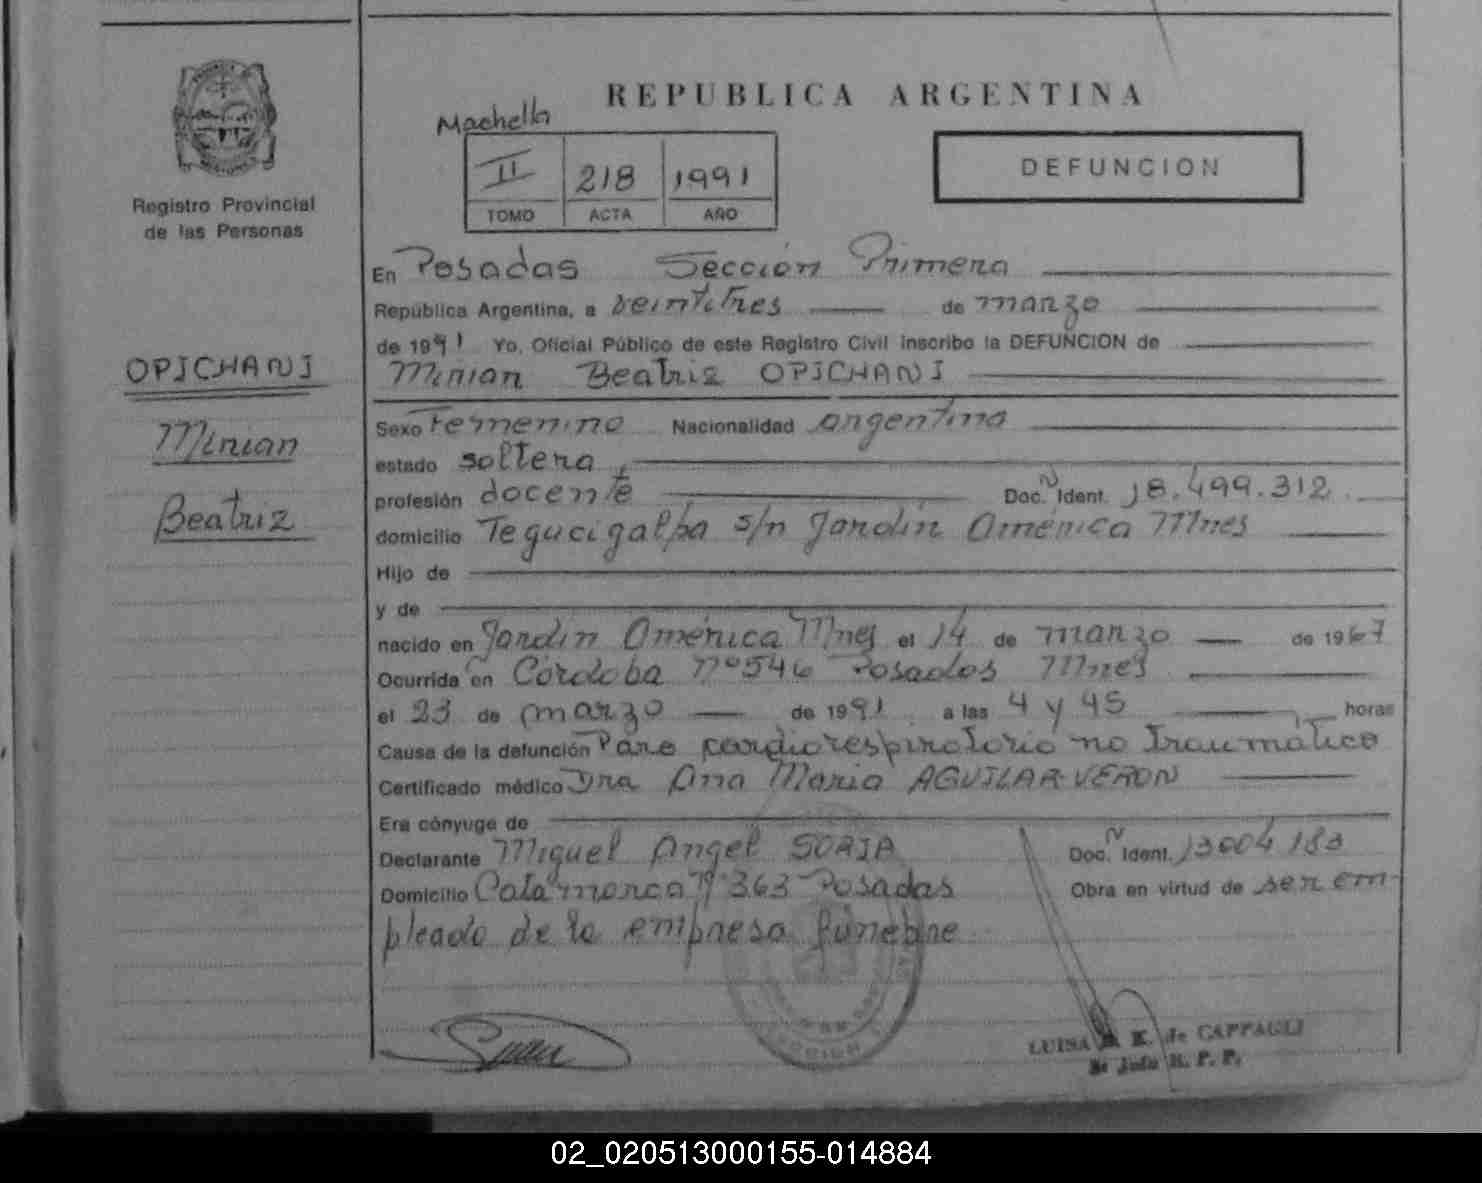 REPUBLICA ARGENTINA
Machella
II 218 1991
TOMO ACTA AÑO
DEFUNCION
Registro Provincial
de las Personas
OPICHANI
Mirian
Beatriz
En Posadas Sección Primera
República Argentina, a veintitres de marzo
de 1991 Yo, Oficial Público de este Registro Civil inscribo la DEFUNCION de
Mirian Beatriz OPICHANI
Sexo Femenino Nacionalidad argentina
estado soltera,
profesión docente Doc. N Ident. 18.499.312.
domicilio Tegucigalpa s/n Jardín América Mnes
Hijo de
y de
nacido en Jardín América Mnes el 14 de marzo de 1967
Ocurrida en Córdoba Nº 546 Posadas Mnes
el 23 de marzo de 1991 a las 4 y 45 horas
Causa de la defunción Paro cardiorespiratorio no traumático
Certificado médico Dra Ana María AGUILAR VERON
Era cónyuge de
Declarante Miguel Angel SORIA Doc. N Ident. 13004183
Domicilio Catamarca Nº 363 Posadas Obra en virtud de ser em-
pleado de la empresa fúnebre
LUISA K. de CAPPAGLI
R. P. P.
02_020513000155-014884